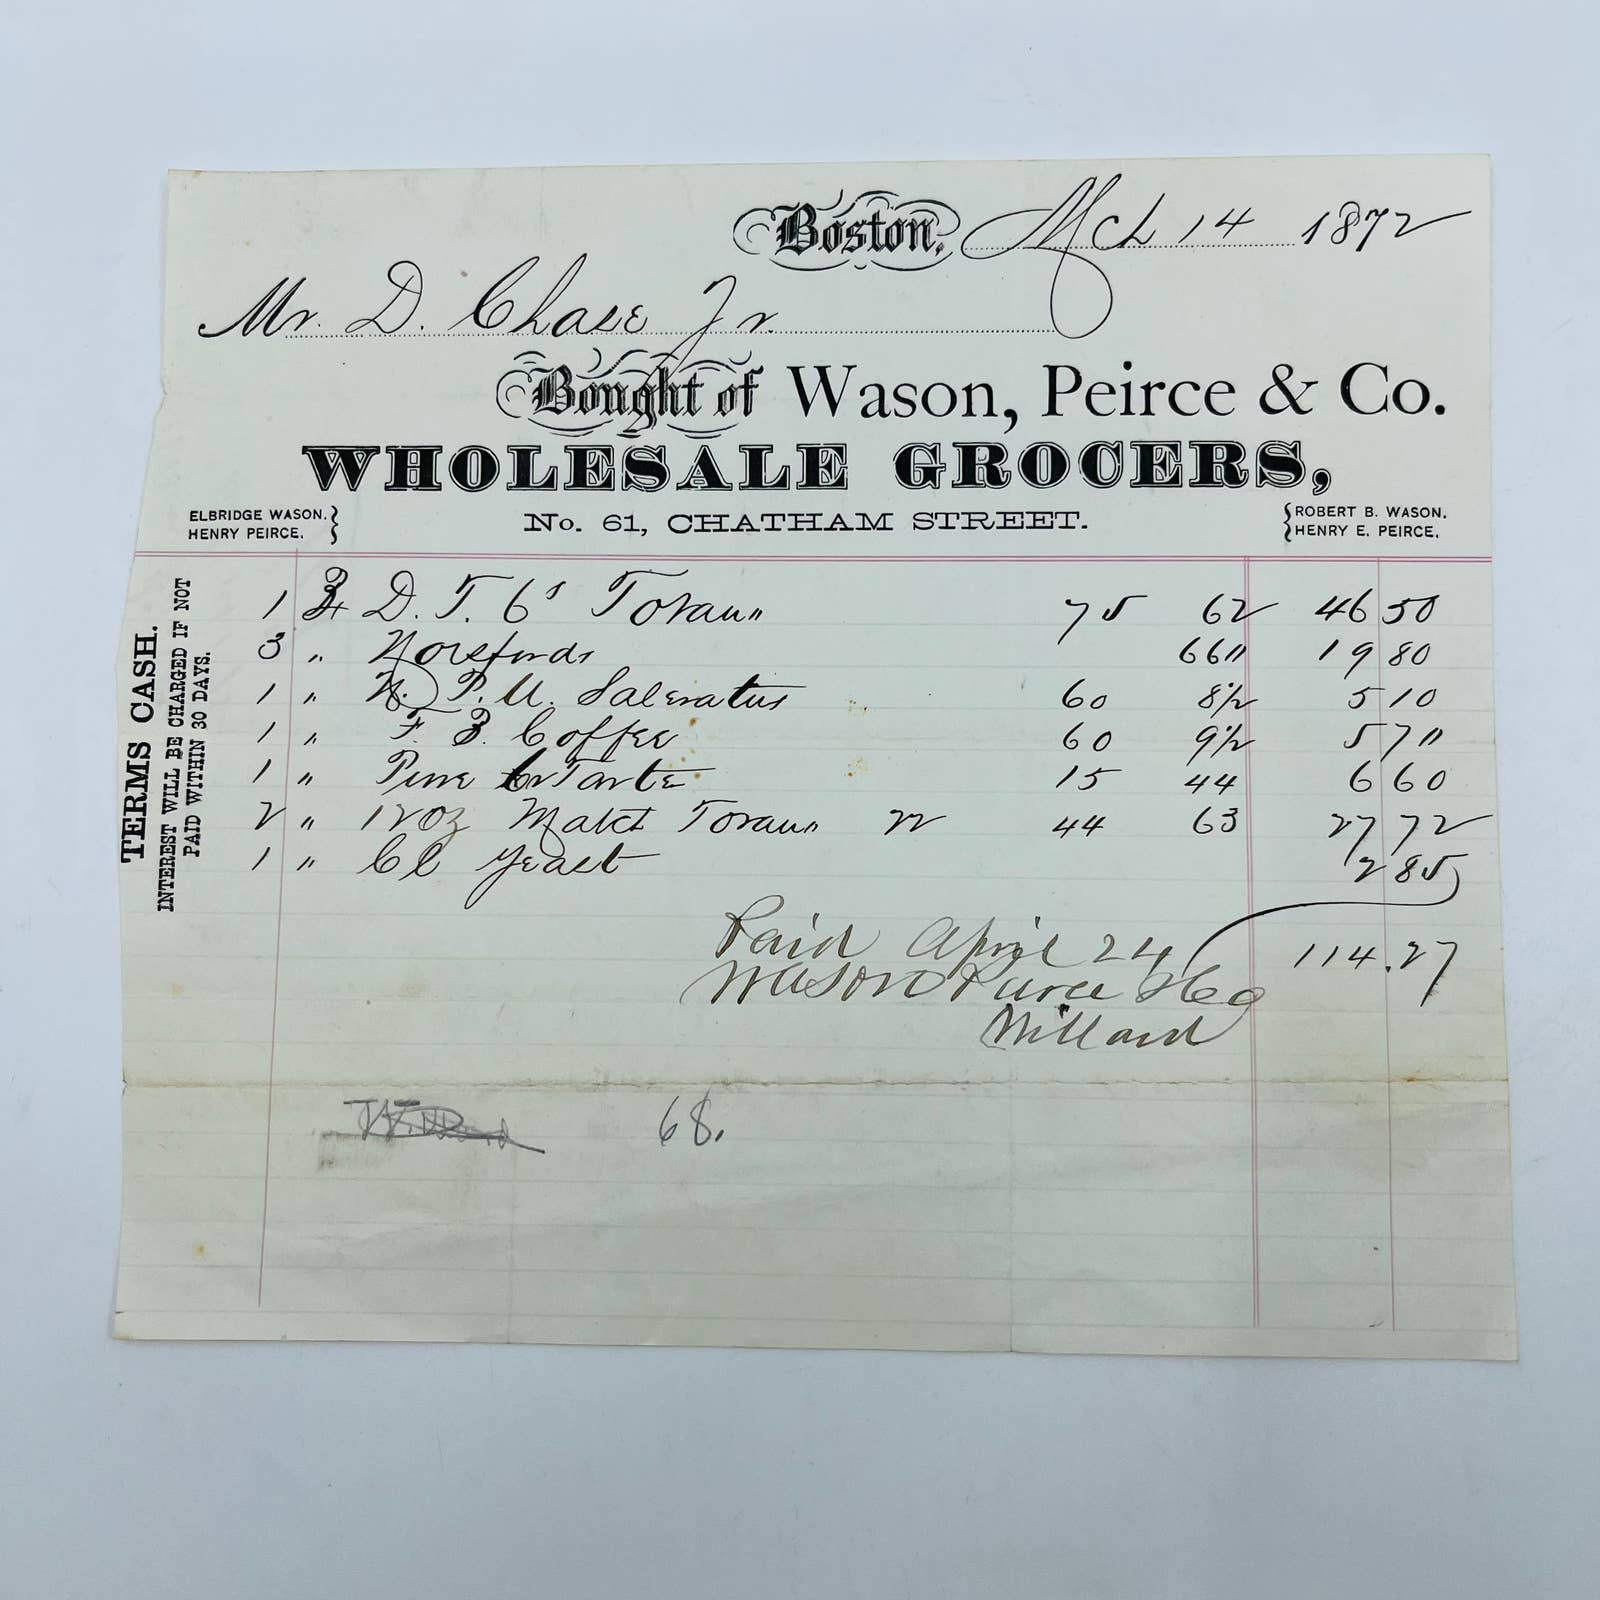 Boston, Mch 14 1872
Mr. D. Chase Jr.
Bought of Wason, Peirce & Co.
WHOLESALE GROCERS,
ELBRIDGE WASON. HENRY PEIRCE.
No. 61, CHATHAM STREET.
ROBERT B. WASON. HENRY E. PEIRCE.
TERMS CASH.
INTEREST WILL BE CHARGED IF NOT
PAID WITHIN 30 DAYS.
1 D. T. 6s 75 62 46 50
3 " Horsfords 66" 19 80
1 " P. M. Saleratus 60 8½ 5 10
1 " F. B. Coffee 60 9½ 5 7"
1 " Pure Cr Tarte 15 44 6 60
2 " 12 oz 22 44 63 27 72
1 " Cl Yeast 2 85
Paid April 24 114.27
Wason Peirce & Co
Willard
68.